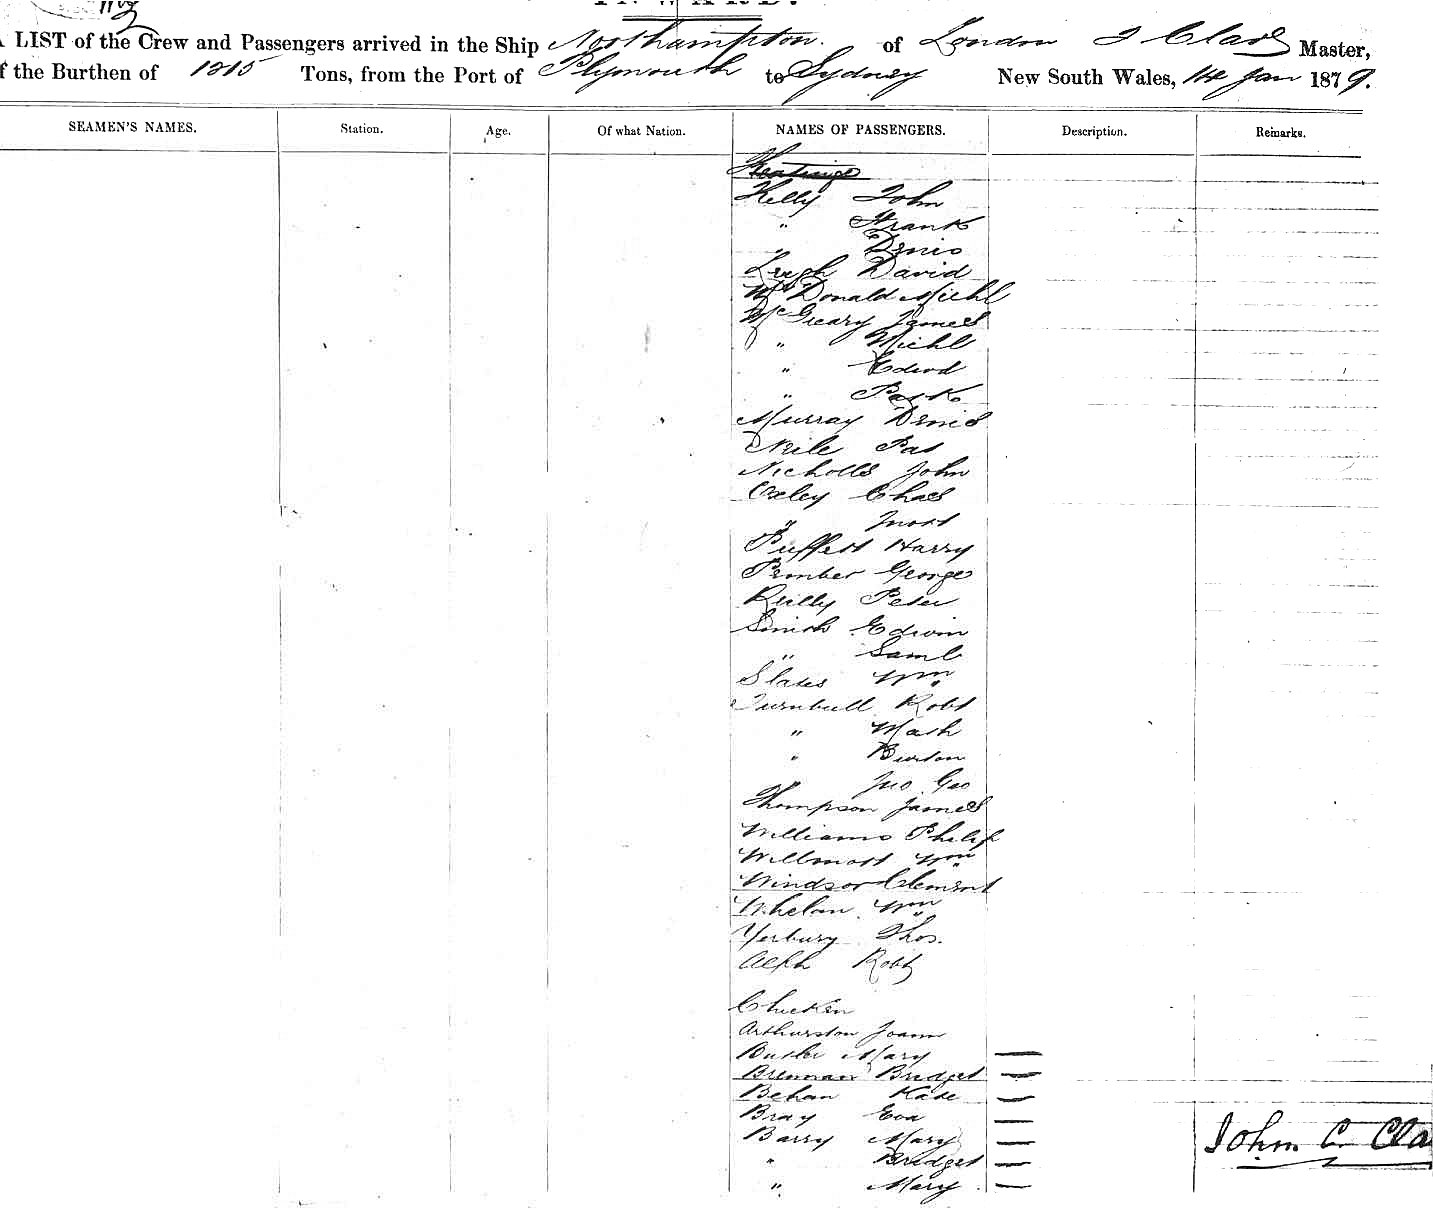 INWARD.
A LIST of the Crew and Passengers arrived in the Ship Northampton. of London J Clare Master,
of the Burthen of 1215 Tons, from the Port of Plymouth to Sydney New South Wales, 14 Jan 1879.
SEAMEN'S NAMES. Station. Age. Of what Nation. NAMES OF PASSENGERS. Description. Remarks.
Keatinge
Kelly John
" Frank
" Denis
Leigh David
McDonald Michl
McGreary James
" Michl
" Edwd
" Patk
Murray Denis
Neile Pat
Nicholls John
Oxley Chas
"
Puffett Harry
Pember George
Reilly Peter
Smith Edwin
" Saml
Slater Wm
Turnbull Robt
" Math
" Burton
" Jno Geo
Thompson James
Williams Philip
Willmott Wm
Windsor Clement
Whelan Wm
Yerbury Thos.
Alph Robt
Chicken
Arthurston Joann
Butler Mary —
Brennan Bridget —
Behan Kate —
Bray Eva —
Barry Mary —
" Bridget —
" Mary —
John C. Cla